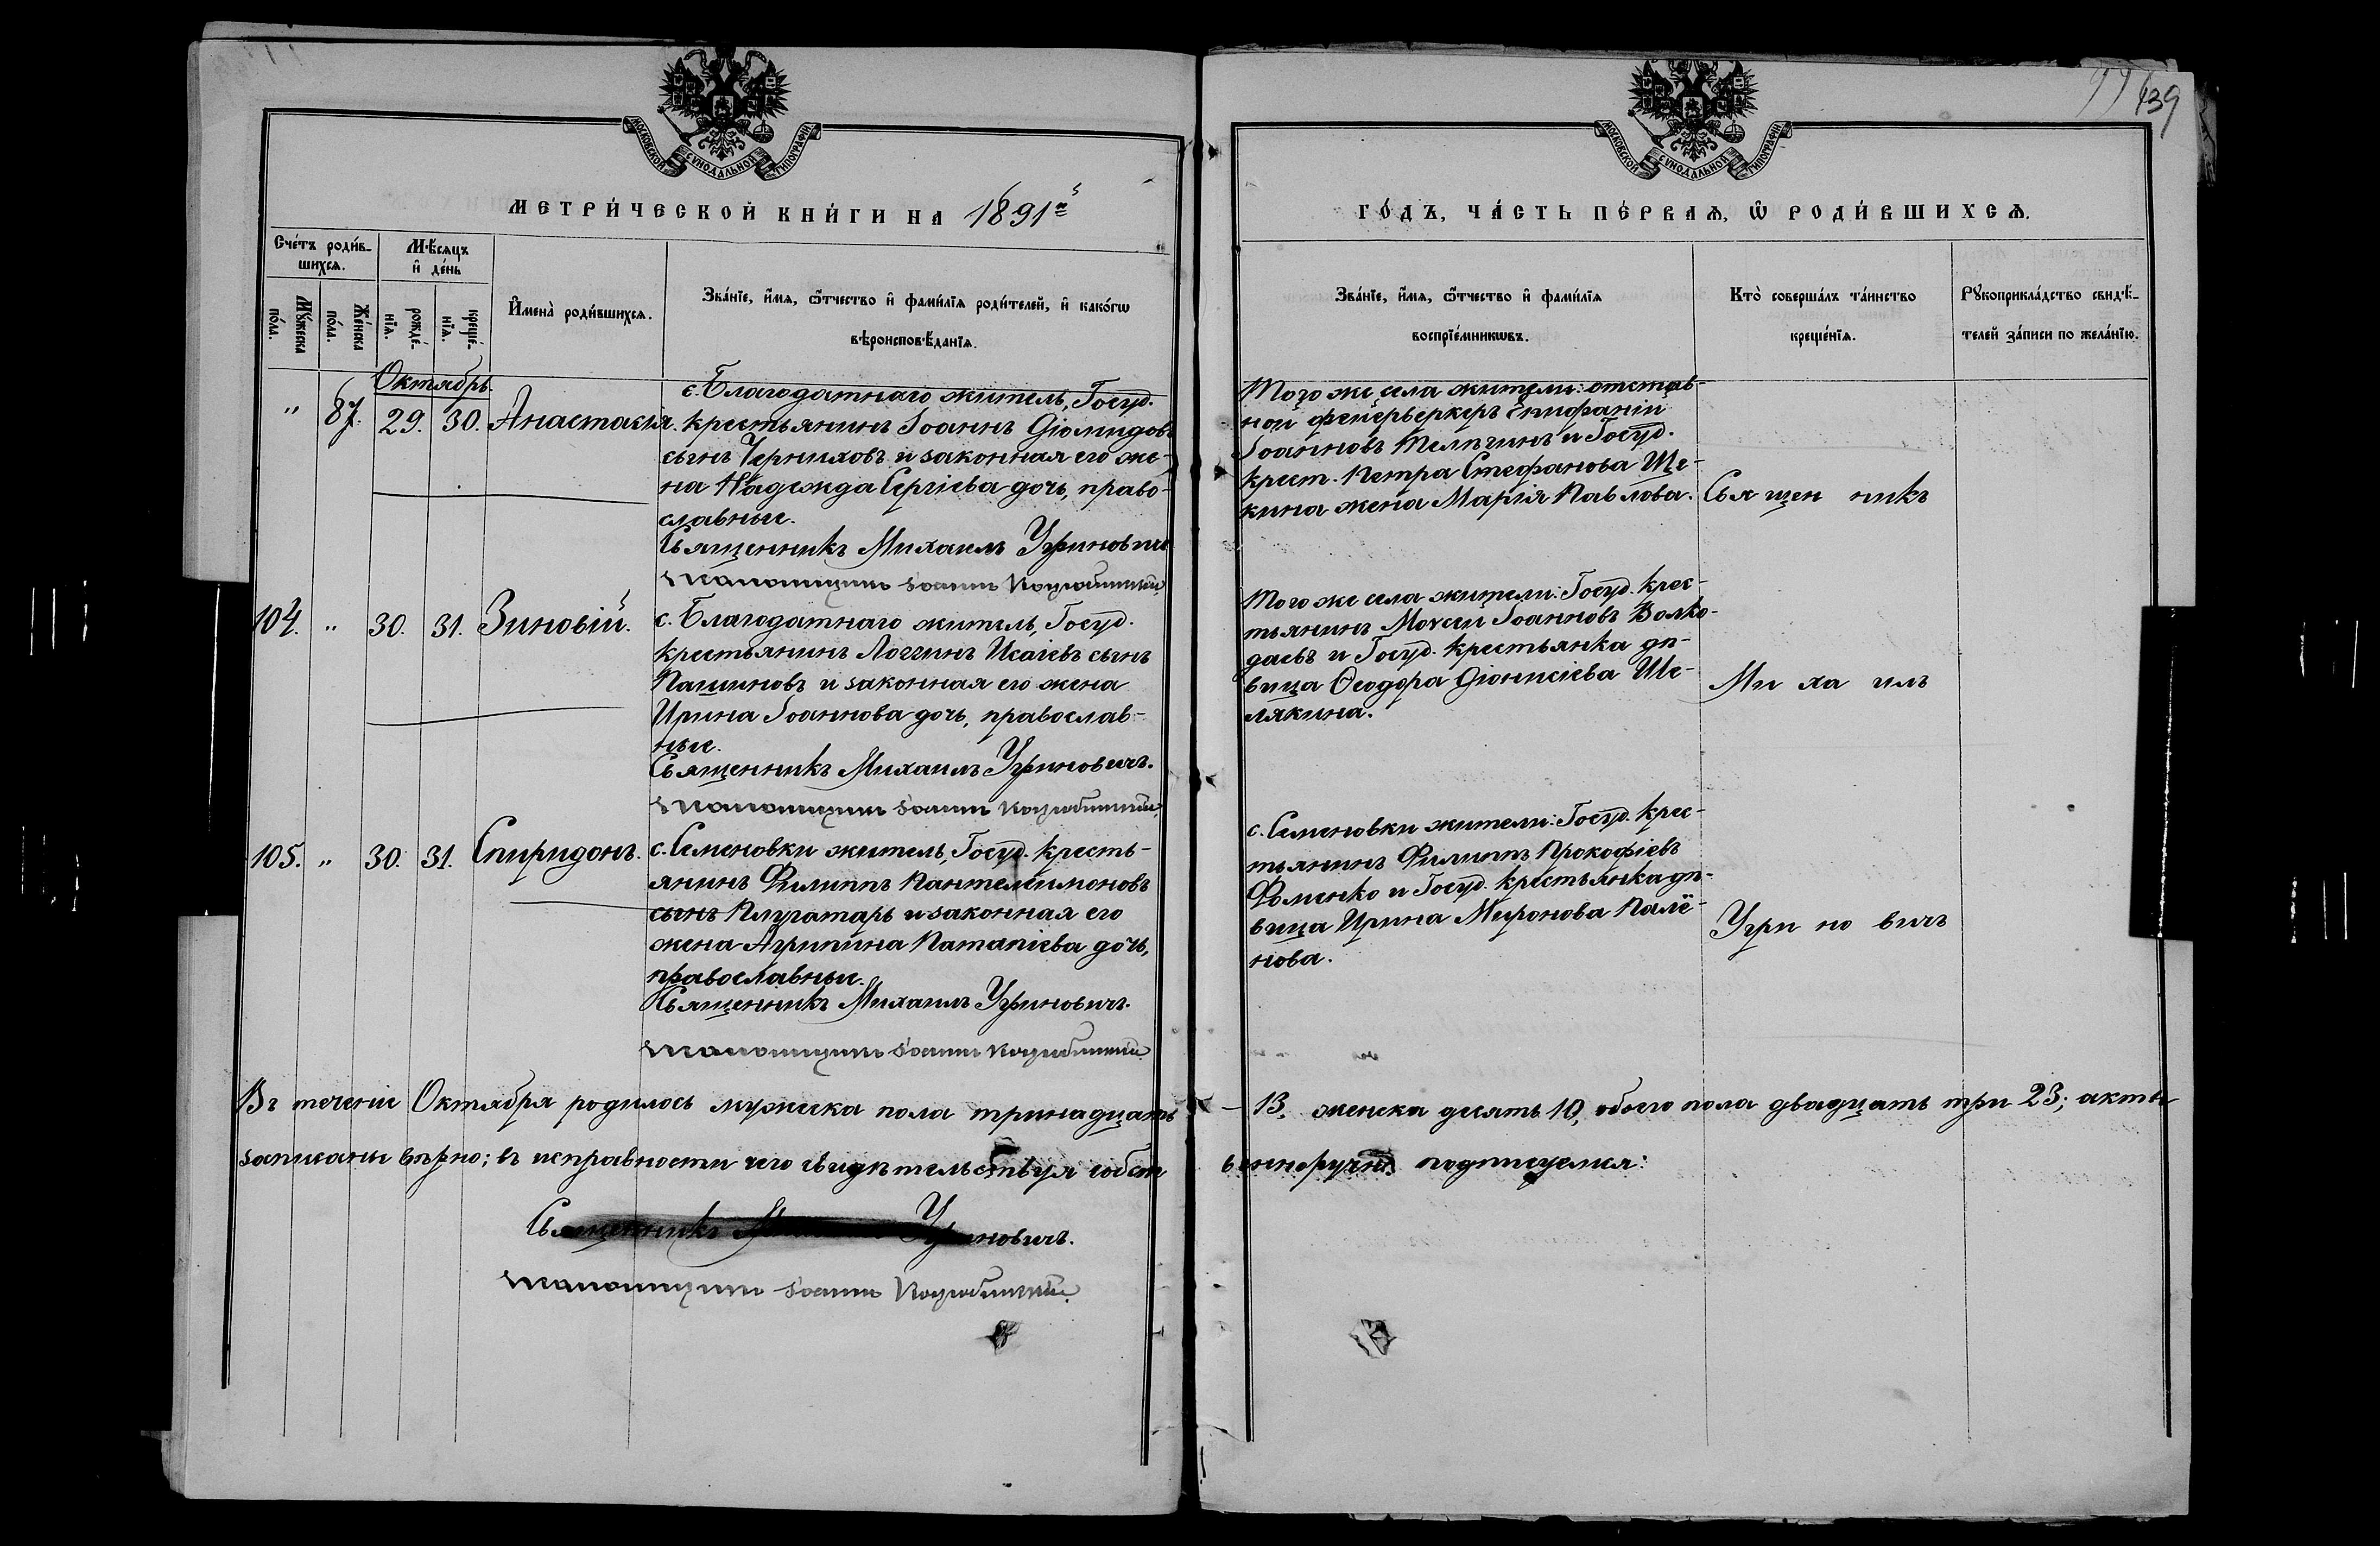 99 139
МОСКОВСКОЙ СѴНОДАЛЬНОЙ ТИПОГРАФІИ
МЕТРИ́ЧЕСКОЙ КНИ́ГИ НА 1891й
Сче́тъ роди́в-
шихсѧ.
Мꙋ́жеска
по́ла.
Же́нска
по́ла.
Мѣ́сѧцъ
и҆ де́нь
рожде́-
нїѧ.
креще́-
нїѧ.
И҆мена̀ роди́вшихсѧ.
Зва́нїе, и҆́мѧ, ѻ҆́тчество и҆ фами́лїѧ роди́телей, и҆ како́гѡ
вѣроисповѣ́данїѧ.
Октябрь.
" 87. 29. 30. Анастасія.
с. Благодатнаго житель, Госуд.
крестьянинъ Іоаннъ Діомидовъ
сынъ Черниховъ и законная его же-
на Надежда Сергіева дочь, право-
славные.
Священникъ Михаилъ Угриновичъ
Псаломщикъ Іоаннъ
104. " 30. 31. Зиновій.
с. Благодатнаго житель, Госуд.
крестьянинъ Логгинъ Исаіевъ сынъ
Пашиновъ и законная его жена
Ирина Іоаннова дочь, православ-
ные.
Священникъ Михаилъ Угриновичъ.
Псаломщикъ Іоаннъ
105. " 30. 31. Спиридонъ.
с. Семеновки житель, Госуд. кресть-
янинъ Филиппъ Пантелеимоновъ
сынъ Плугатарь и законная его
жена Агрипина Патапіева дочь,
православные.
Священникъ Михаилъ Угриновичъ.
Псаломщикъ Іоаннъ
МОСКОВСКОЙ СѴНОДАЛЬНОЙ ТИПОГРАФІИ
ГО́ДЪ, ЧА́СТЬ ПЕ́РВАѦ, Ѽ РОДИ́ВШИХСѦ.
Зва́нїе, и҆́мѧ, ѻ҆́тчество и҆ фами́лїѧ
воспрїе́мникѡвъ.
Кто̀ соверша́лъ та́инство
креще́нїѧ.
Рꙋкоприкла́дство свидѣ́-
телей за́писи по жела́нїю.
Того же села жители: отстав-
ной фейерверкеръ Епифаній
Іоанновъ Телѣгинъ и Госуд.
крест. Петра Стефанова Ще-
кина жена Марія Павлова.
Того же села жители: Госуд. крес-
тьянинъ Моѵсей Іоанновъ Волко-
даевъ и Госуд. крестьянка дѣ-
вица Ѳеодора Діонисіева Ше-
лякина.
с. Семеновки жители: Госуд. крес-
тьянинъ Филиппъ Прокофіевъ
Фоменко и Госуд. крестьянка дѣ-
вица Ирина Миронова Палё-
нова.
Священникъ
Михаилъ
Угриновичъ
Въ теченіе Октября родилось мужеска пола тринадцать - 13, женска десять 10, обоего пола двадцать три 23; акты
записаны вѣрно; въ исправности чего свидѣтельствуя собственноручно подписуемся:
Священникъ Угриновичъ.
Псаломщикъ Іоаннъ